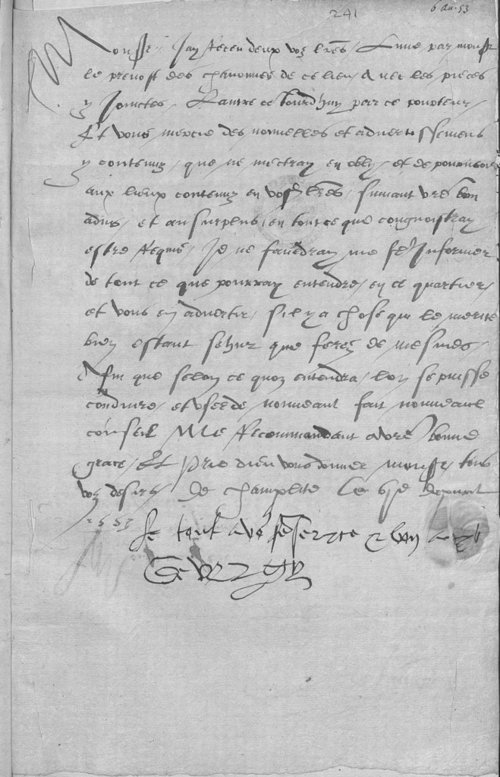 241
Mons^r J'ay receu deux voz l~res / L'une par mons^r
le prevost des chanoines de ce lieu / Avec les pieces
y joinctes / L'autre ce Jourdhuy par ce porteur /
Et vous mercie des nouvelles et advertissemens
y contenuz / que ne mectray en obly / et de pourveoir
aux lieux contenuz en vosd l~res / suivant v~re bon
advis / et au surplus / en tout ce que congnoistray
estre requis / Je ne fauldray me f~e Informer
de tout ce que pourray entendre / en ce quartier /
et vous en advertir / s'il y a chose qui le merite
bien estant sehur que ferez de mesmes /
Afin que selon ce quon entendra / l'on se puisse
conduire / et user de nouveau fait nouveau
conseil Me Recommandant a v~re bonne
grace / Et prie dieu vous donner mons^r tous
voz desirs / De champlite Le vj^e d'apvril
1553
Le tout a vo^s fe servyce et bon amy